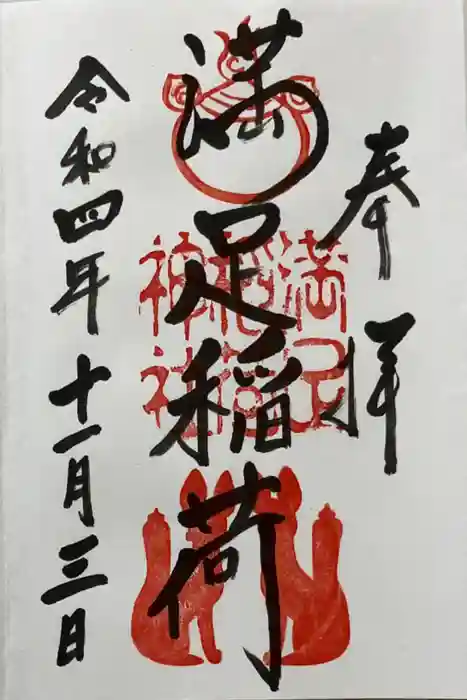 奉拝
満足稲荷
満足
稲荷
神社
令和四年十一月三日